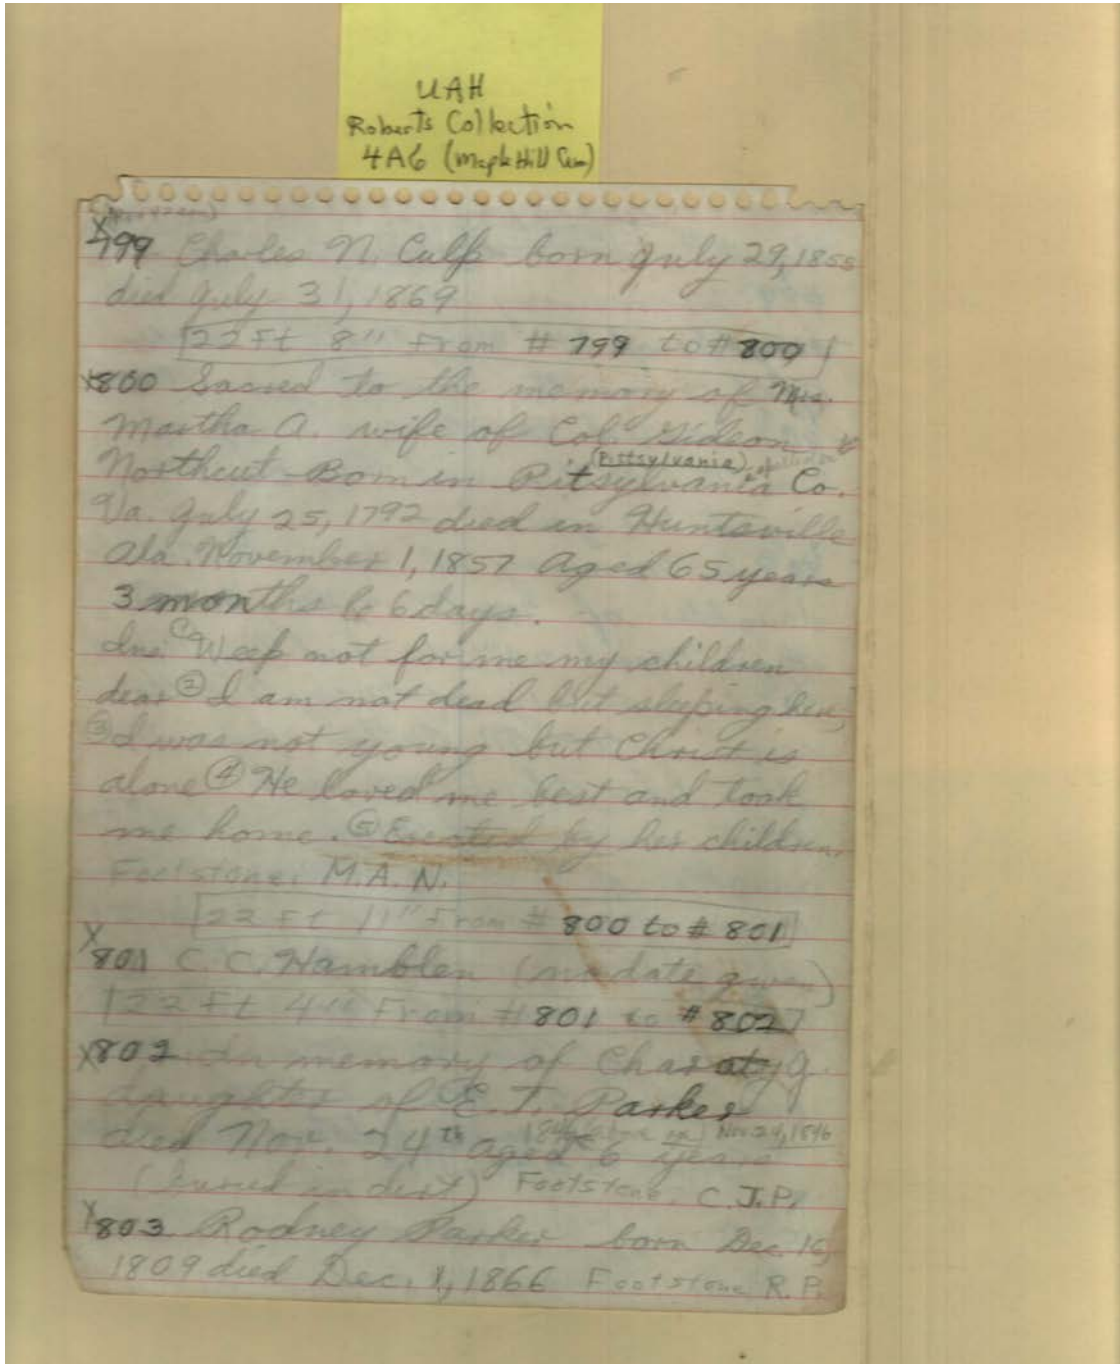 UAH
Roberts Collection
4A6 (Maple Hill Cem)
X799 Charles N. Culp born July 29, 1855
died July 31, 1869
22 Ft 8" From # 799 to # 800
X800 Sacred to the memory of Mrs.
Martha A. wife of Col. Gideon
Northcut Born in Pitsylvania Co.
(Pittsylvania)
Va. July 25, 1792 died in Huntsville
Ala. November 1, 1857 Aged 65 years
3 months & 6 days.
Ins. ① Weep not for me my children
dear ② I am not dead but sleeping here,
③ I was not young but Christ is
alone ④ He loved me best and took
me home. ⑤ Erected by her children.
Footstone: M.A.N.
22 Ft 11" From # 800 to # 801
X801 C. C. Hamblen (no date given)
22 Ft 4" From # 801 to # 802
X802 In memory of Charaty J.
daughter of E. T. Parker
died Nov. 24th aged 6 years
Nov 24, 1846
(buried in dirt) Footstone. C.J.P.
X803 Rodney Parker born Dec 16,
1809 died Dec. 1, 1866 Footstone R.P.